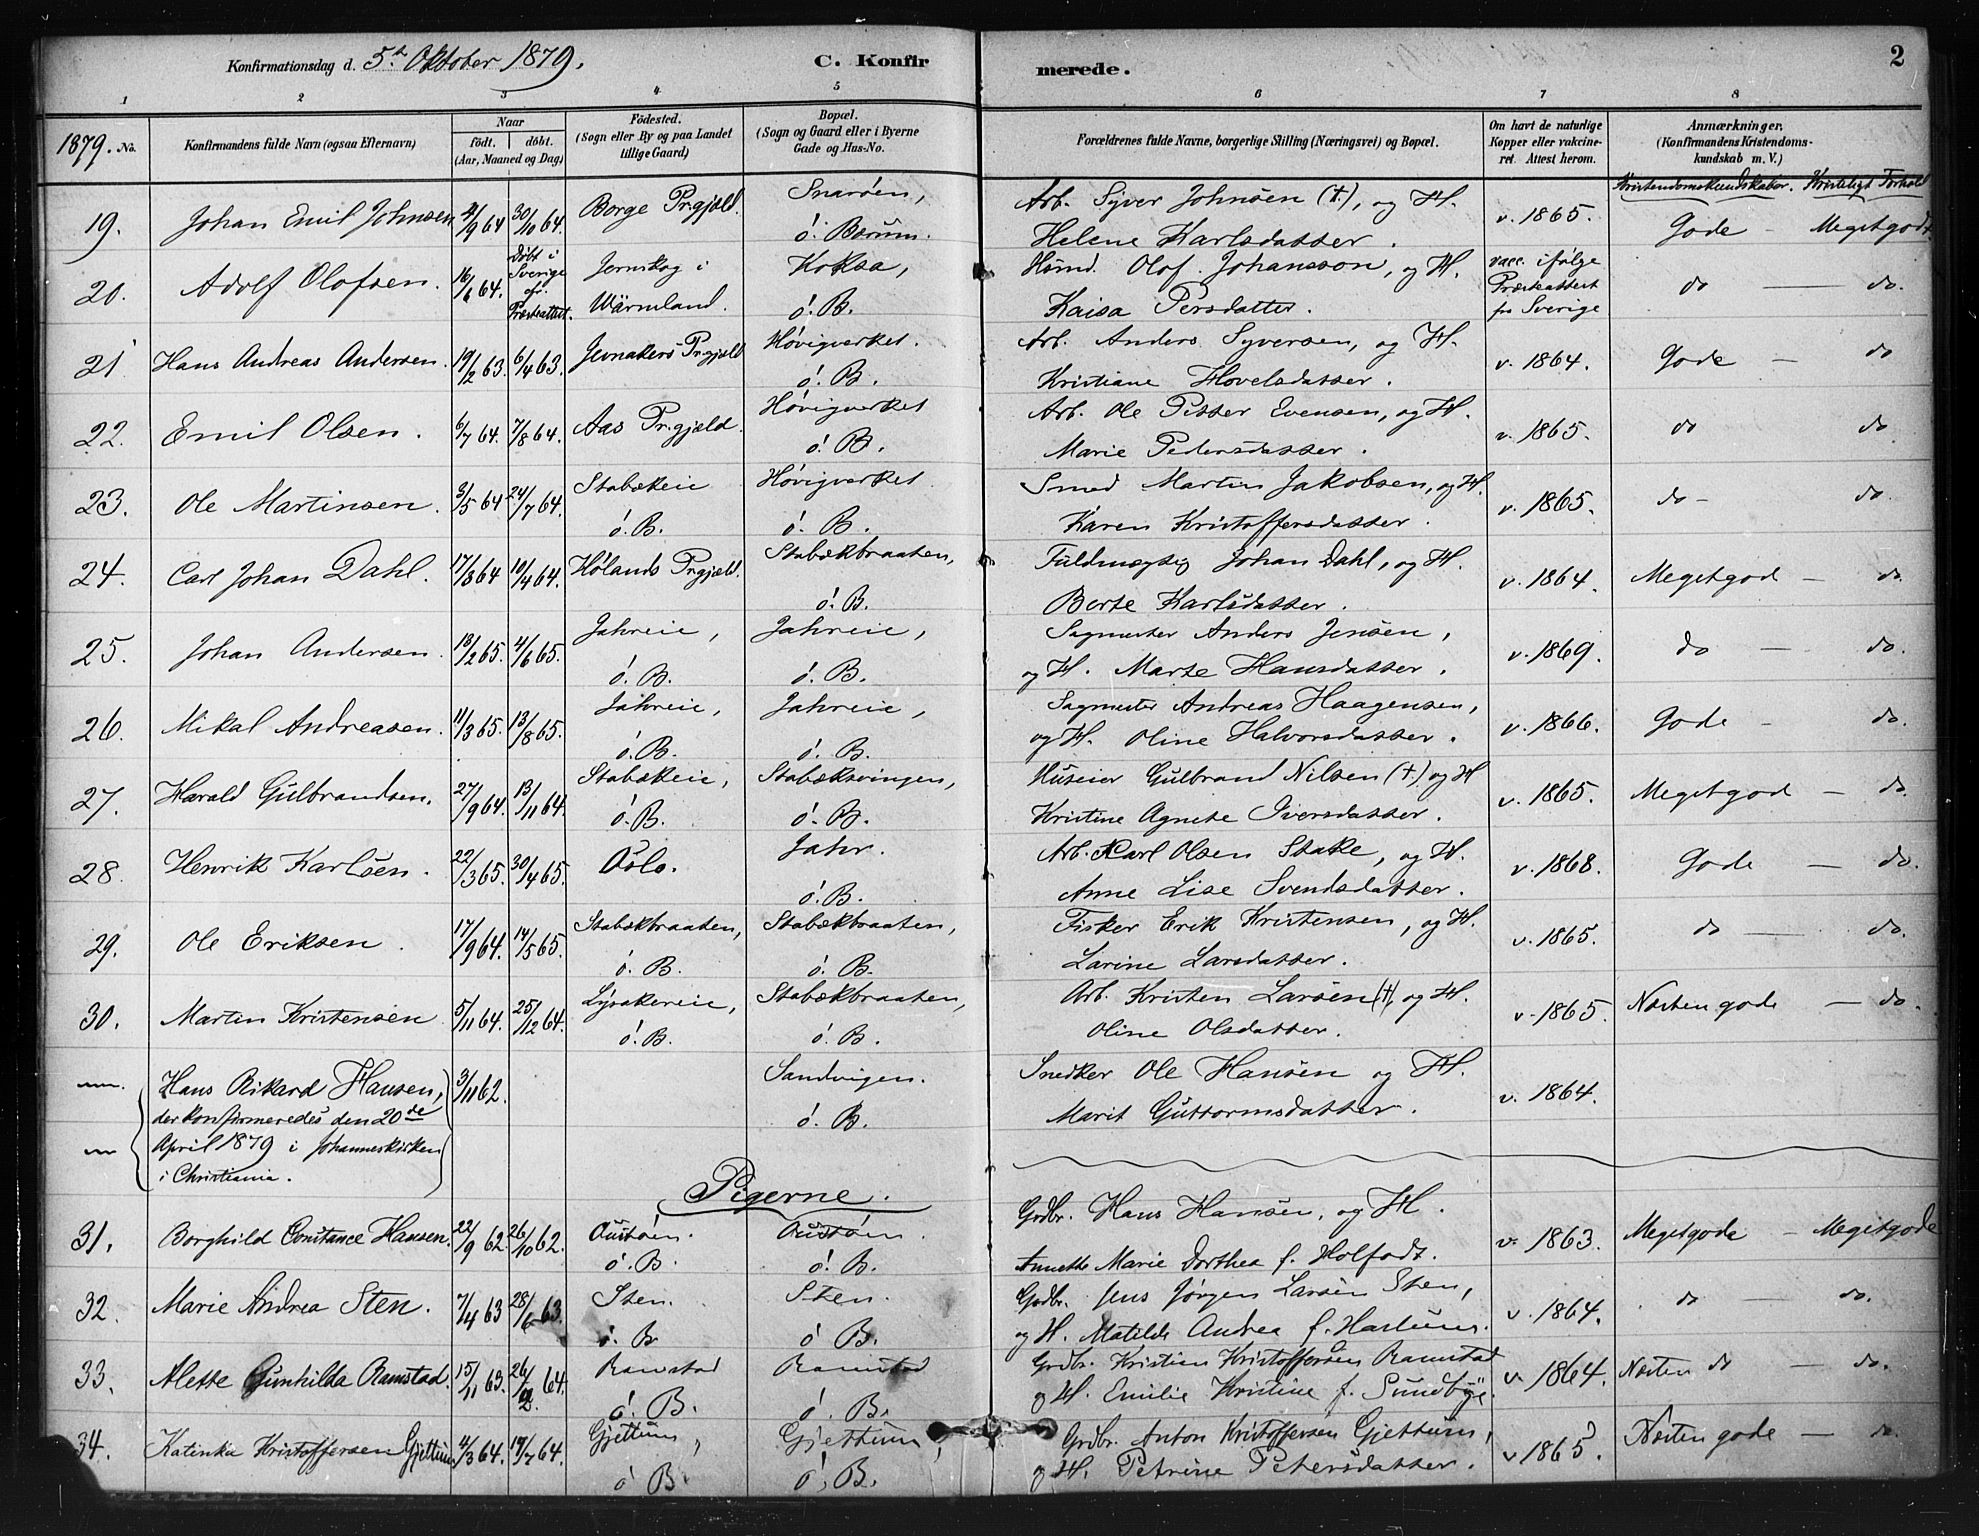 Konfirmationsdag d. 5te Oktober 1879.
C. Konfirmerede.
2
1 2 3 4 5 6 7 8
1879. No.
Konfirmandens fulde Navn (ogsaa Efternavn)
Naar
født. døbt.
(Aar, Maaned og Dag)
Fødested.
(Sogn eller By og paa Landet
tillige Gaard)
Bopæl.
(Sogn og Gaard eller i Byerne
Gade og Hus-No.
Forældrenes fulde Navne, borgerlige Stilling (Næringsvei) og Bopæl.
Om havt de naturlige
Kopper eller vakcine-
ret. Attest herom.
Anmærkninger.
(Konfirmandens Kristendoms-
kundskab m. V.)
Kristendomskundskaber. Kristeligt Forhold
19. Johan Emil Johnsen 4/9 64 30/10 64. Borge Pr.gjæld. Snarøen, Arb. Syver Johnsen (†), og H. v. 1865. Gode - Megetgodt.
ø. Bærum. Helene Karlsdatter.
20. Adolf Olofsen. 16/6 64. Døbt i Sverige efr. Præsteattest. Jernskog i Koksa, Hsmd. Olof Johansson, og H. vacc. ifølge do — do.
Wärmland. ø. B. Kaisa Persdatter. Præsteattest
fra Sverige
21 Hans Andreas Andersen. 19/2 63. 6/4 63. Jevnakers Pr.gjæld Høvigverket. Arb. Anders Syversen, og H. v. 1864. Gode — do
ø. B. Kristiane Hovelsdatter.
22. Emil Olsen. 6/7 64. 7/8 64. Aas Pr.gjæld. Høvigverket Arb. Ole Petter Evensen, og H. v. 1865. do do
ø. B. Marie Pedersdatter.
23. Ole Martinsen. 3/5 64 24/7 64. Stabækeie Høvigverket. Smed Martin Jakobsen, og H. v. 1865. do - do.
ø. B. ø. B. Karen Kristoffersdatter.
24. Carl Johan Dahl. 17/3 64 10/4 64. Hølands Pr.gjæld. Stabækbraaten, Fuldmægtig Johan Dahl, og H. v. 1864. Megetgod — do.
ø. B. Berte Karlsdatter.
25. Johan Andersen. 13/2 65. 4/6 65. Jahreie, Jahreie, Sagmester Anders Jensen, v. 1869. do — do.
ø. B. ø. B. og H. Marte Hansdatter.
26. Mikal Andreasen. 11/3 65. 13/8 65. Jahreie, Jahreie, Sagmester Andreas Haagensen, v. 1866. Gode - do.
ø. B. ø. B. og H. Oline Halvorsdatter.
27. Harald Gulbrandsen. 27/9 64. 13/11 64. Stabækeie, Stabæksvingen, Huseier Gulbrand Nilsen (†) og H v. 1865. Megetgod — do.
ø. B. ø. B. Kristine Agnete Iversdatter.
28. Henrik Karlsen. 22/3 65. 30/4 65. Oslo. Jahr. Arb. Karl Olsen Stake, og H. v. 1868. Gode — do.
ø. B. Anne Lise Svendsdatter.
29. Ole Eriksen. 17/9 64. 14/5 65. Stabækbraaten, Stabækbraaten, Fisker Erik Kristensen, og H. v. 1865. do — do.
ø. B. ø. B. Larine Larsdatter.
30. Martin Kristensen 5/11 64. 25/12 64. Lysakereie, Stabækbraaten, Arb. Kristen Larsen (†), og H. v. 1865. Næsten gode — do.
ø. B. ø. B. Oline Olsdatter.
Hans Rikard Hansen, 3/11 62. Sandvigen. Snedker Ole Hansen og H. v. 1864.
der konfirmeredes den 20de ø. B. Marit Guttormsdatter.
April 1879 i Johanneskirken
i Christiania.
Pigerne.
31. Borghild Constance Hansen. 22/9 62. 26/10 62. Oustøen. Oustøen. Grdbr. Hans Hansen, og H. v. 1863. Megetgode - Megetgode
ø. B. ø. B. Annette Marie Dorthea f. Holfodt.
32. Marie Andrea Sten. 7/4 63 28/6 63. Sten. Sten. Grdbr. Jens Jørgen Larsen Sten, v. 1864. do — do.
ø. B ø B. og H. Matilde Andrea f. Haslum.
33. Alette Gunhilda Ramstad. 15/11 63. 26/2 64. Ramstad Ramstad Grdbr. Kristian Kristoffersen Ramstad v. 1864. Næsten do — do.
ø. B. ø. B. og H. Emilie Kristine f. Sundbye.
34. Katinka Kristoffersen Gjettum 4/3 64. 17/7 64. Gjettum, Gjettum, Grdbr. Anton Kristoffersen Gjettum, v 1865. Næsten gode — do.
ø B. ø. B. og H. Petrine Petersdatter.